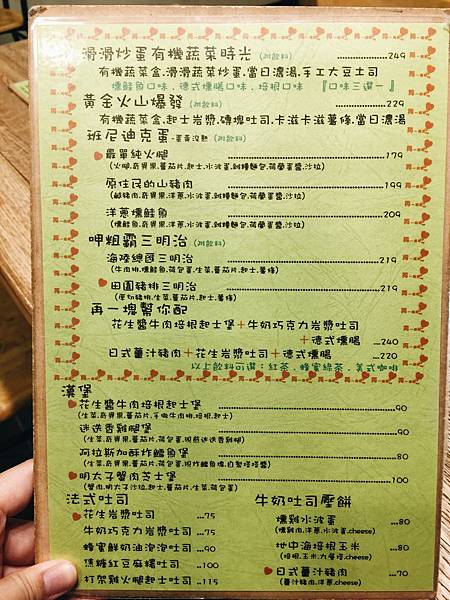 滑滑炒蛋有機蔬菜時光(附飲料) 249
有機蔬菜盒.滑滑蔬菜炒蛋.當日濃湯.手工大豆土司
燻鮭魚口味.德式燻腸口味.培根口味 『口味三選一』
黃金火山爆發(附飲料) 229
有機蔬菜盒.起士岩漿.磚塊吐司.卡滋卡滋薯條.當日濃湯
班尼迪克蛋-蛋黃沒熟(附飲料)
最單純火腿 179
(火腿.奇異果.蕃茄片.起士.水波蛋.雜糧麵包.荷蘭蛋醬.沙拉)
原住民的山豬肉 199
(鹹豬肉.奇異果.洋蔥.水波蛋.雜糧麵包.荷蘭蛋醬.沙拉)
洋蔥燻鮭魚 209
(燻鮭魚.奇異果.洋蔥.水波蛋.雜糧麵包.荷蘭蛋醬.沙拉)
呷粗霸三明治(附飲料)
海陸總匯三明治 219
(牛肉排.燻鮭魚.荷包蛋.生菜.蕃茄片.起士.薯條)
田園豬排三明治 219
(厚切豬排.生菜.蕃茄片.起士.薯條)
再一塊幫你配
花生醬牛肉培根起士堡+牛奶巧克力岩漿吐司
+德式燻腸 ...240
日式薑汁豬肉+花生岩漿吐司+德式燻腸 ...220
以上飲料可選:紅茶.蜂蜜綠茶.美式咖啡
漢堡
花生醬牛肉培根起士堡 90
(生菜.奇異果.蕃茄片.手做牛肉排.培根.起士)
迷迭香雞腿堡 90
(生菜.奇異果.蕃茄片.荷包蛋.現煎迷迭香雞腿)
阿拉斯加酥炸鱈魚堡 80
(生菜.奇異果.蕃茄片.荷包蛋.現炸鱈魚塊.自製塔塔醬)
明太子蟹肉芝士堡 100
(蟹肉.明太子沙拉.起士.蕃茄片.生菜.荷包蛋)
法式吐司
花生岩漿吐司 ...75
牛奶巧克力岩漿吐司 ...75
蜂蜜鮮奶油泡泡吐司 ...90
焦糖紅豆麻糬吐司 ...100
打架雞火腿起士吐司 ...115
牛奶吐司壓餅
燻雞水波蛋 ...80
(燻雞肉.洋蔥.水波蛋.cheese)
地中海培根玉米 ...80
(培根.玉米.九層塔.cheese)
日式薑汁豬肉 ...70
(薑汁豬肉.洋蔥.cheese)